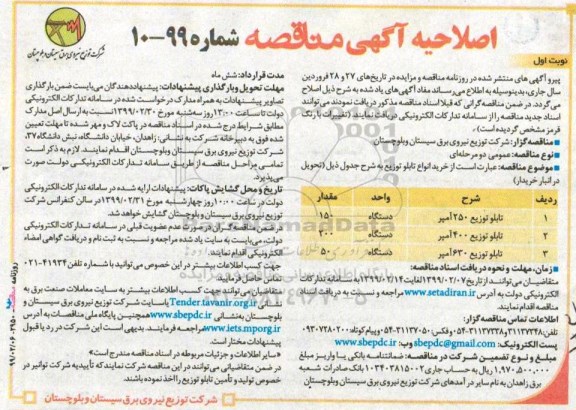 اصلاحیه آگهی مناقصه شماره ۹۹-۱۰
شرکت توزیع نیروی برق سیستان و بلوچستان
نوبت اول
پیرو آگهی های منتشر شده در روزنامه مناقصه و مزایده در تاریخ‌های ۲۷ و ۲۸ فروردین
سال جاری، بدینوسیله به اطلاع می‌رساند مفاد آگهی‌های یاد شده به شرح ذیل اصلاح
می‌گردد. در ضمن مناقصه‌گرانی که قبلا اسناد مناقصه مذکور دریافت نمودند می‌توانند
اسناد جدید مناقصه را از سامانه تدارکات الکترونیکی دریافت نمایند. (تغییرات با رنگ
قرمز مشخص گردیده است).
مناقصه گزار: شرکت توزیع نیروی برق سیستان وبلوچستان
نوع مناقصه: عمومی دو مرحله‌ای
موضوع مناقصه: عبارت است از خرید انواع تابلو توزیع به شرح جدول ذیل (تحویل
در انبار خریدار)
ردیف شرح واحد مقدار
۱ تابلو توزیع ۲۵۰ آمپر دستگاه ۱۵۰
۲ تابلو توزیع ۴۰۰ آمپر دستگاه ۳۰۰
۳ تابلو توزیع ۶۳۰ آمپر دستگاه ۵۰
زمان، مهلت و نحوه دریافت اسناد مناقصه:
متقاضیان می‌توانند از تاریخ ۱۳۹۹/۰۲/۰۷ لغایت ۱۳۹۹/۰۲/۱۴ به سامانه تدارکات
الکترونیکی دولت به آدرس www.setadiran.ir مراجعه و نسبت به دریافت اسناد
مناقصه اقدام نمایند.
اطلاعات تماس مناقصه گزار:
تلفن ۳۱۱۳۷۳۴۸-۰۵۴ و ۳۱۱۳۷۳۳۸-۰۵۴ و فکس ۳۱۱۳۷۰۵۰-۰۵۴ و پیام کوتاه ۰۹۳۰۷۲۸۰۲۰۰
پست الکترونیک: sbepdc@gmail.com وب: www.sbepdc.ir
مبلغ و نوع تضمین شرکت در مناقصه: ضمانتنامه بانکی یا واریز مبلغ
۱,۹۷۰,۵۰۰,۰۰۰ ریال به حساب جاری ۰۱۰۳۴۰۳۸۱۵۰۰۲ بانک صادرات شعبه
برق زاهدان به نام سایر درآمدهای شرکت توزیع نیروی برق سیستان وبلوچستان
مدت قرارداد: شش ماه
مهلت تحویل و بارگذاری پیشنهادات: پیشنهاددهندگان می‌بایست ضمن بارگذاری
تصاویر پیشنهادات به همراه مدارک درخواست شده در سامانه تدارکات الکترونیکی
دولت تا ساعت ۱۳:۰۰ روز سه‌شنبه مورخ ۱۳۹۹/۰۲/۳۰ نسبت به ارسال اصل مدارک
مطابق شرایط درج شده در اسناد مناقصه در پاکت لاک و مهر شده تا مهلت تعیین
شده فوق به دبیرخانه شرکت به نشانی: زاهدان، خیابان دانشگاه، نبش دانشگاه ۳۷،
شرکت توزیع نیروی برق سیستان وبلوچستان اقدام نمایند. لازم به ذکر است
تمامی مراحل مناقصه از طریق سامانه تدارکات الکترونیکی دولت صورت
می‌پذیرد.
تاریخ و محل گشایش پاکات: پیشنهادات ارایه شده در سامانه تدارکات الکترونیکی
دولت در ساعت ۱۰:۰۰ روز چهارشنبه مورخ ۱۳۹۹/۰۲/۳۱ در سالن کنفرانس شرکت
توزیع نیروی برق سیستان و بلوچستان گشایش خواهد شد.
در ضمن مناقصه‌گران در صورت عدم عضویت قبلی در سامانه تدارکات الکترونیکی
دولت، می‌بایست به سایت یاد شده مراجعه و نسبت به ثبت نام و دریافت گواهی امضاء
الکترونیکی اقدام نمایند.
جهت کسب اطلاعات بیشتر در این خصوص می‌توانید با شماره تلفن ۴۱۹۳۴-۰۲۱
تماس حاصل فرمایید.
متقاضیان می‌توانند جهت کسب اطلاعات بیشتر به سایت معاملات صنعت برق به
آدرس Tender.tavanir.org.ir یا سایت شرکت توزیع نیروی برق سیستان و
بلوچستان به نشانی www.sbepdc.ir همچنین پایگاه ملی مناقصات به آدرس
www.iets.mporg.ir مراجعه فرمایند. بدیهی است این شرکت در رد یا قبول
پیشنهادات مختار است.
«سایر اطلاعات و جزئیات مربوطه در اسناد مناقصه مندرج است»
در ضمن متقاضیانی می‌توانند در این مناقصه شرکت نمایند که تأییدیه توانیر در
خصوص تولید و تأمین تابلو توزیع را اخذ نموده باشند.
شرکت توزیع نیروی برق سیستان و بلوچستان